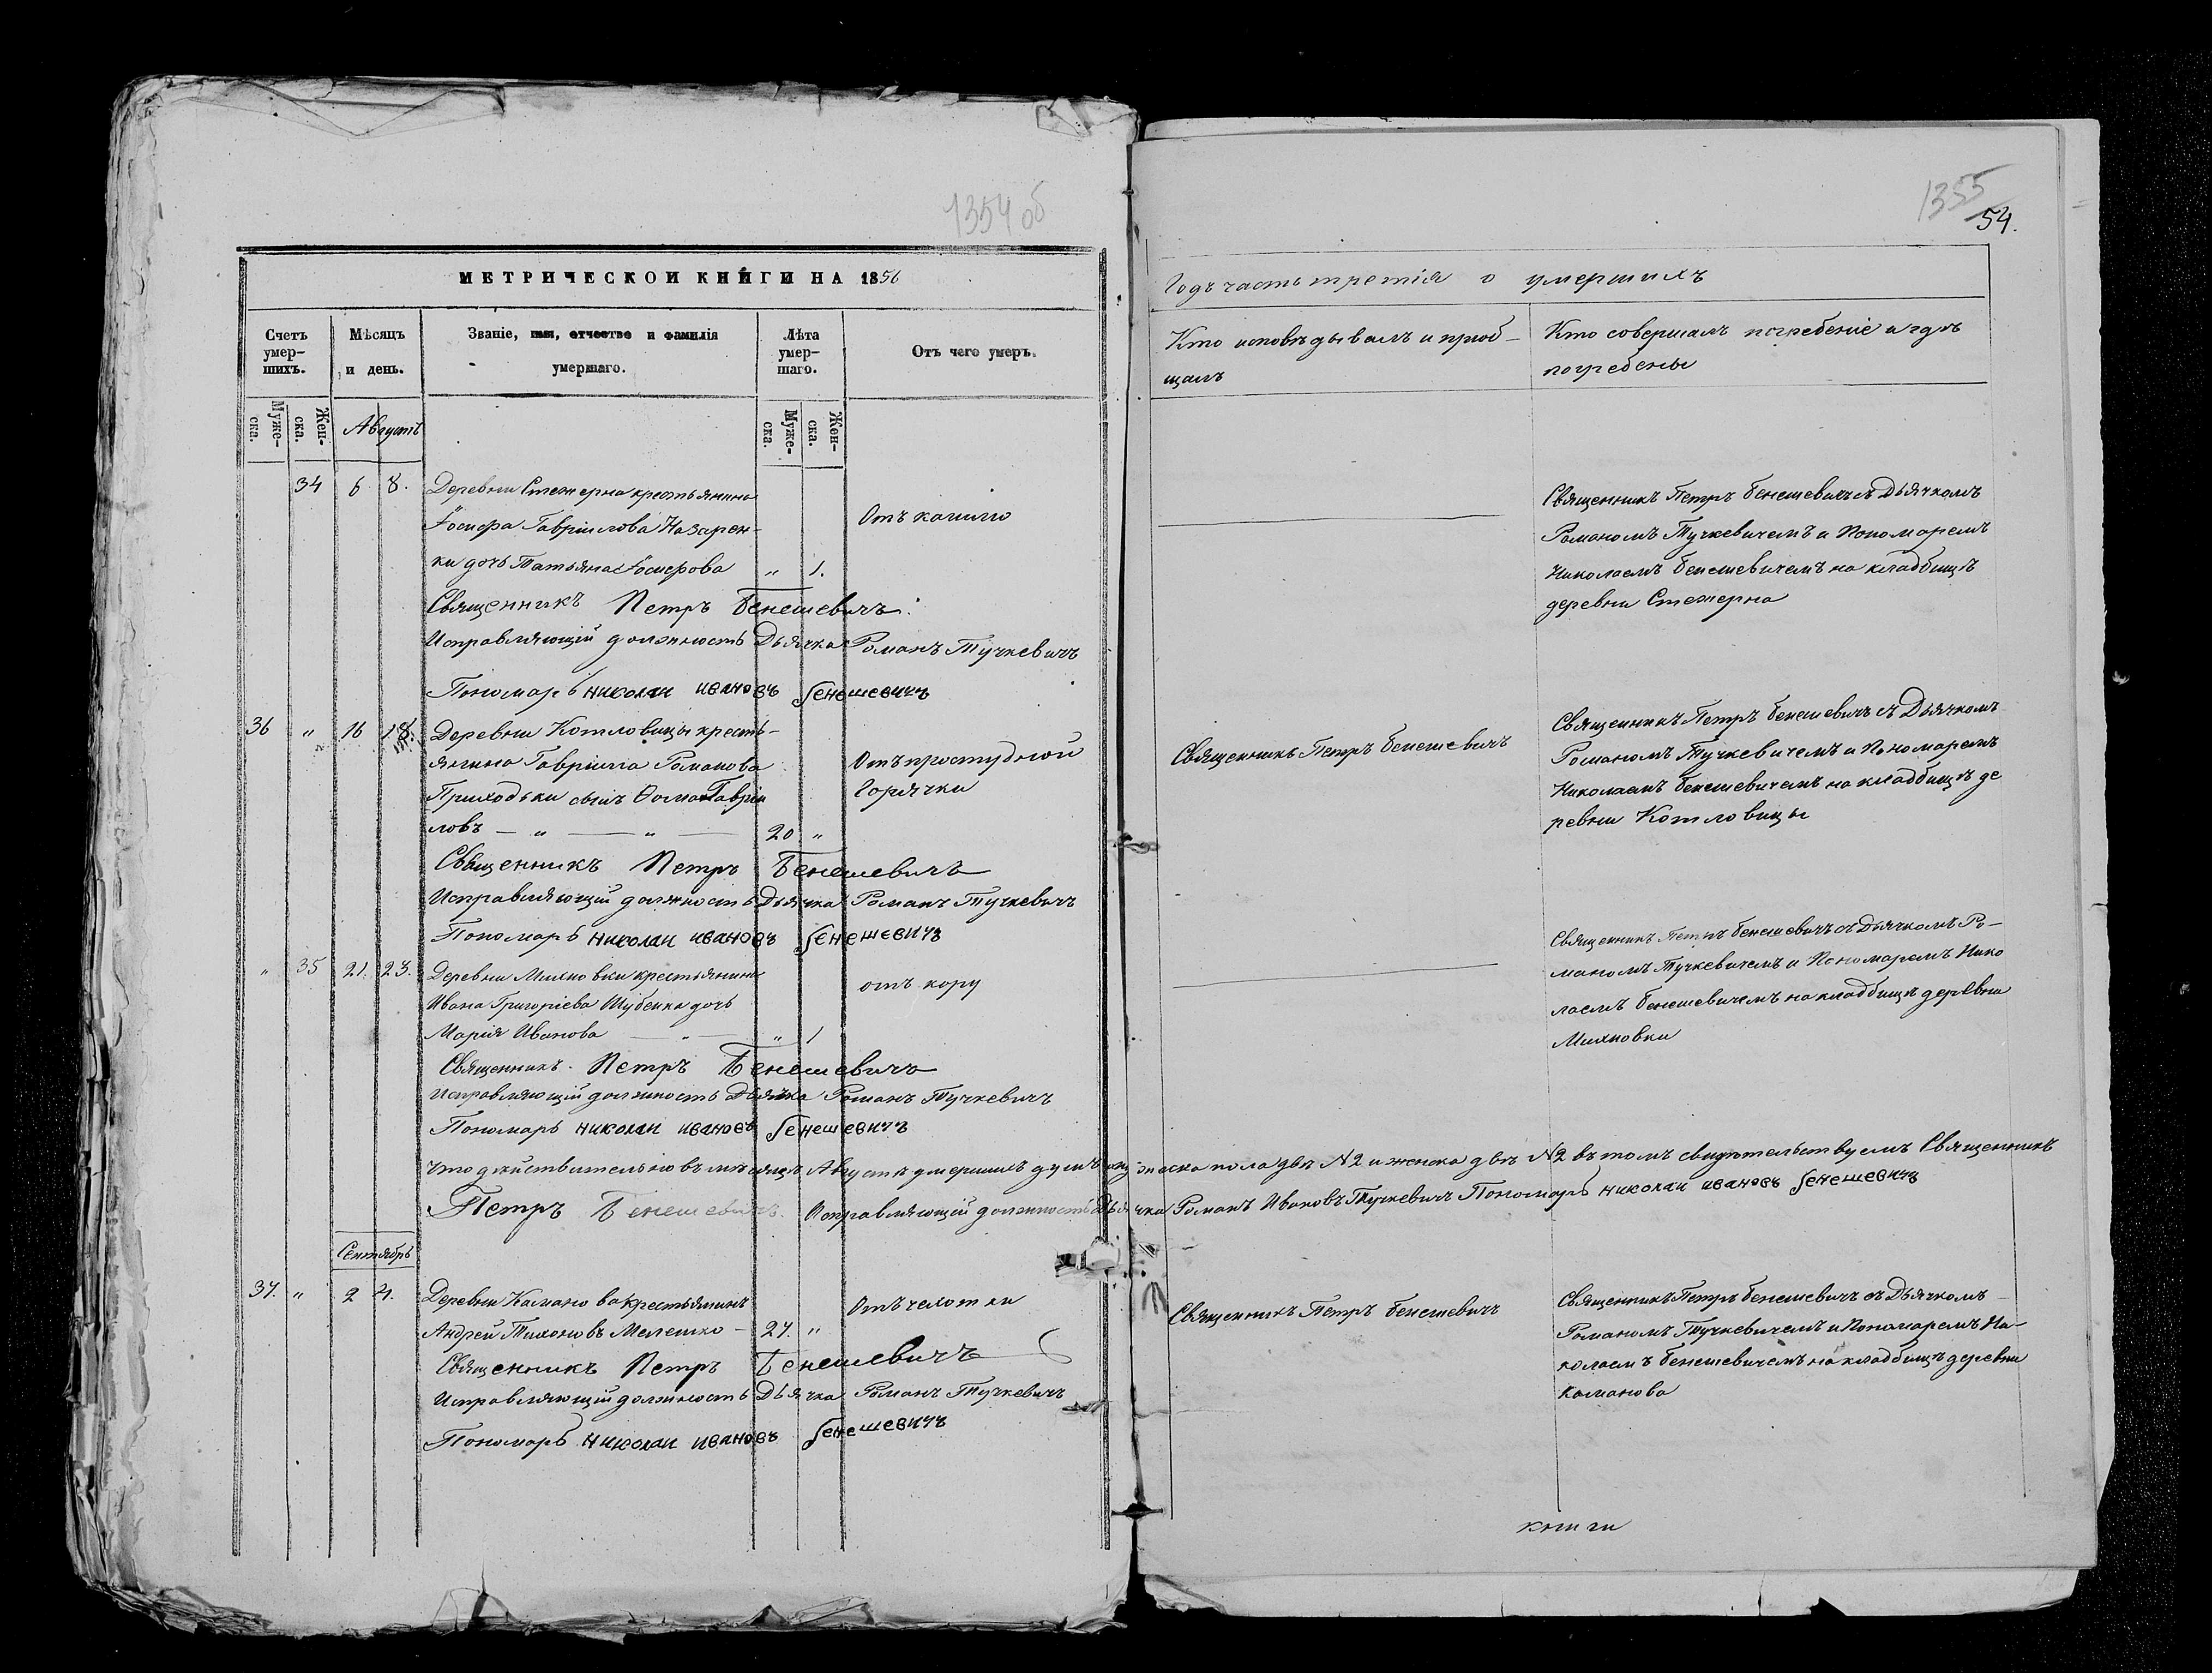 1354 об
МЕТРИЧЕСКОЙ КНИГИ НА 1856
Счетъ умер- шихъ.
Мѣсяцъ и день.
Званіе, имя, отчество и фамилія умершаго.
Лѣта умер- шаго.
Отъ чего умеръ.
Муже- ска.
Жен- ска.
Августъ
Муже- ска.
Жен- ска.
34 6 8. Деревни Стежерна крестьянина
Іосифа Гавріилова Назарен- Отъ кашлю
ки дочь Татьяна Іосифова „ 1.
Священникъ Петръ Бенешевичъ.
Исправляющій должность Дьячка Романъ Тучкевичъ
Пономарь николаи ивановъ бенешевичъ
36 „ 16 18. Деревни Котловицы кресть-
янина Гавріила Романова Отъ простудной
Приходьки сынъ Ѳома Гаврiи Горячки
ловъ — „ — „ — 20 „
Священникъ Петръ Бенешевичъ
Исправляющій должность Дьячка Романъ Тучкевичъ
Пономарь николаи ивановъ бенешевичъ
„ 35 21. 23. Деревни Михновки крестьянина
Ивана Григоріева Шубенка дочь отъ кору
Марія Иванова — „ 1
Священникъ Петръ Бенешевичъ
Исправляющій должность Дьячка Романъ Тучкевичъ
Пономарь николаи ивановъ бенешевичъ
что дѣйствительно въ мѣсяцѣ Августѣ умершихъ душъ мужеска пола двѣ №2 и женска двѣ №2 въ томъ свидѣтельствуемъ Священникъ
Петръ Бенешевичъ. Исправляющій должность Дьячка Романъ Ивановъ Тучкевичъ Пономарь николаи ивановъ бенешевичъ
Сентябрь
37. „ 2 4. Деревни Каманова крестьянинъ Отъ чехотки
Андрей Тихоновъ Мелешко — 27. „
Священникъ Петръ Бенешевичъ
Исправляющій должность Дьячка Романъ Тучкевичъ
Пономарь николаи ивановъ бенешевичъ
1355
54.
Годъ часть третія о умершихъ
Кто исповѣдывалъ и приоб-
щалъ
Кто совершалъ погребеніе и гдѣ
погребены
Священникъ Петръ бенешевичъ съ Дьячкомъ
Романомъ Тучкевичемъ и Пономаремъ
Николаемъ бенешевичемъ на кладбищѣ
деревни Стежерна
Священникъ Петръ бенешевичъ
Священникъ Петръ бенешевичъ съ Дьячкомъ
Романомъ Тучкевичемъ и Пономаремъ
Николаемъ бенешевичемъ на кладбищѣ де
ревни Котловицы
Священникъ Петръ бенешевичъ съ Дьячкомъ Ро-
маномъ Тучкевичемъ и Пономаремъ Нико
лаемъ бенешевичемъ на кладбищѣ деревни
Михновки
Священникъ Петръ бенешевичъ
Священникъ Петръ бенешевичъ съ Дьячкомъ
Романомъ Тучкевичемъ и Пономаремъ Ни-
колаемъ бенешевичемъ на кладбищѣ деревни
Каманова
книги